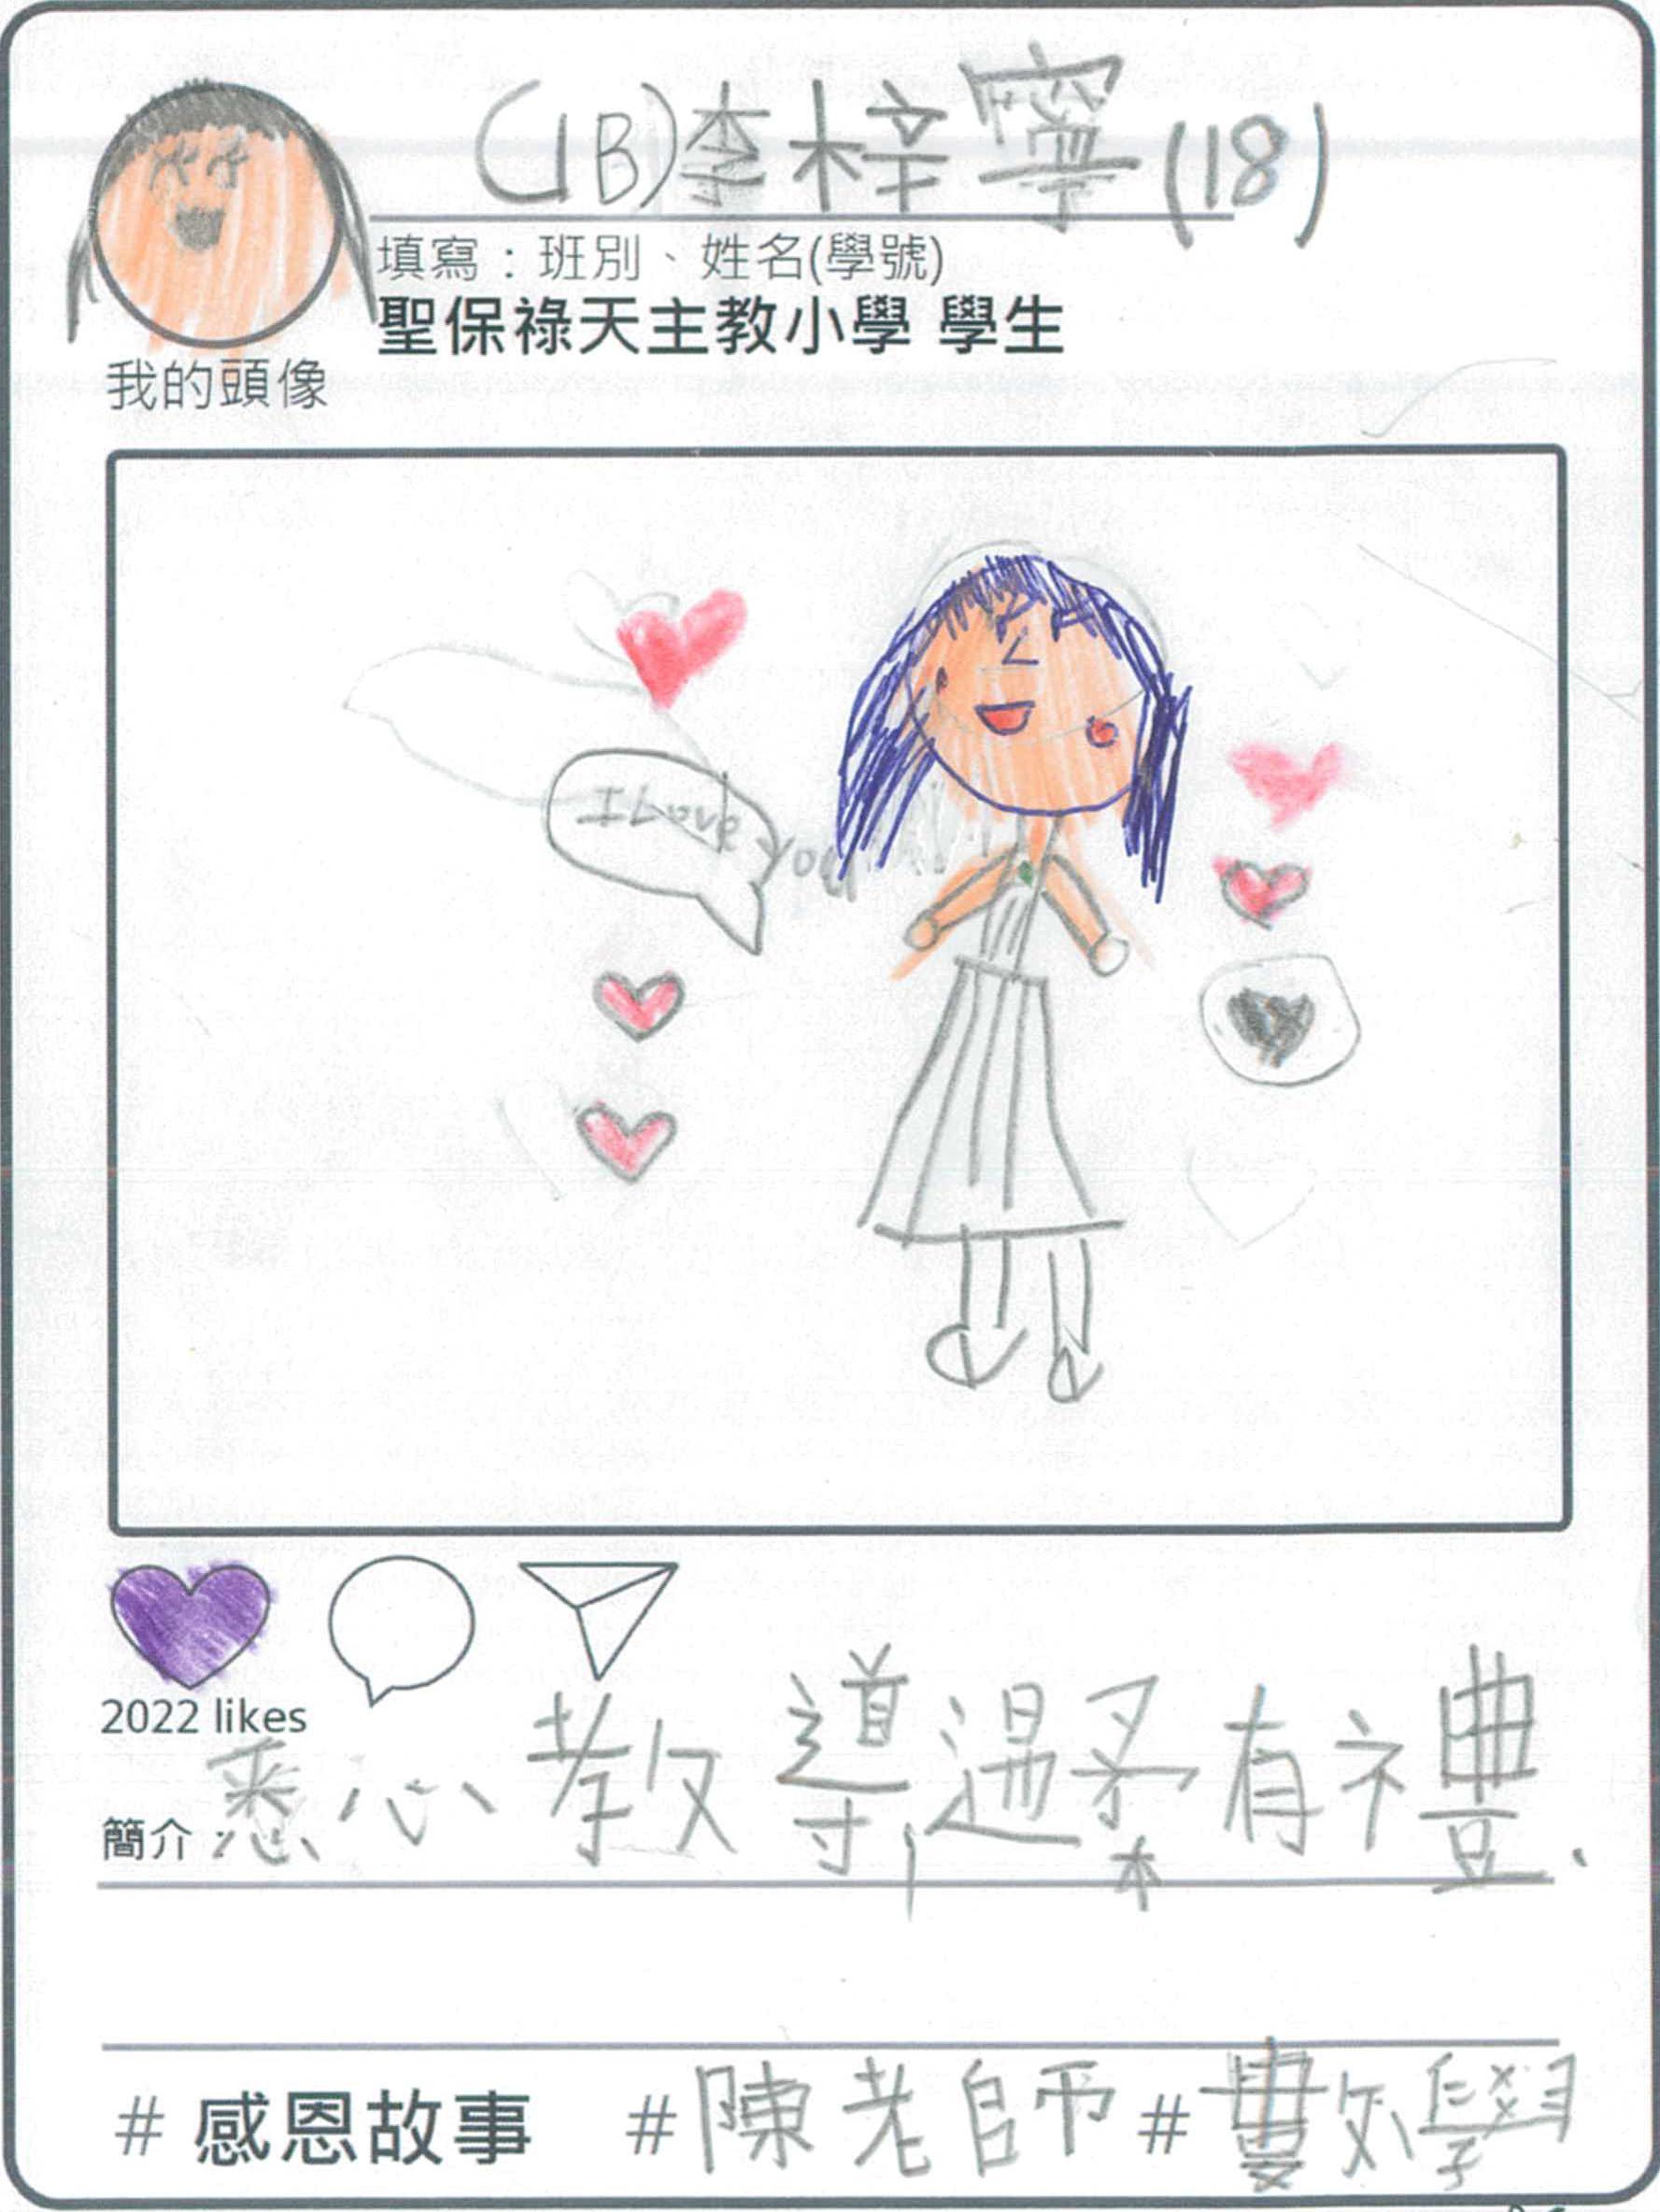 (1B)李梓寧(18)
填寫：班別、姓名(學號)
聖保祿天主教小學 學生
我的頭像
I Love you
2022 likes
簡介：悉心教導,溫柔有禮.
#感恩故事 #陳老師#數學